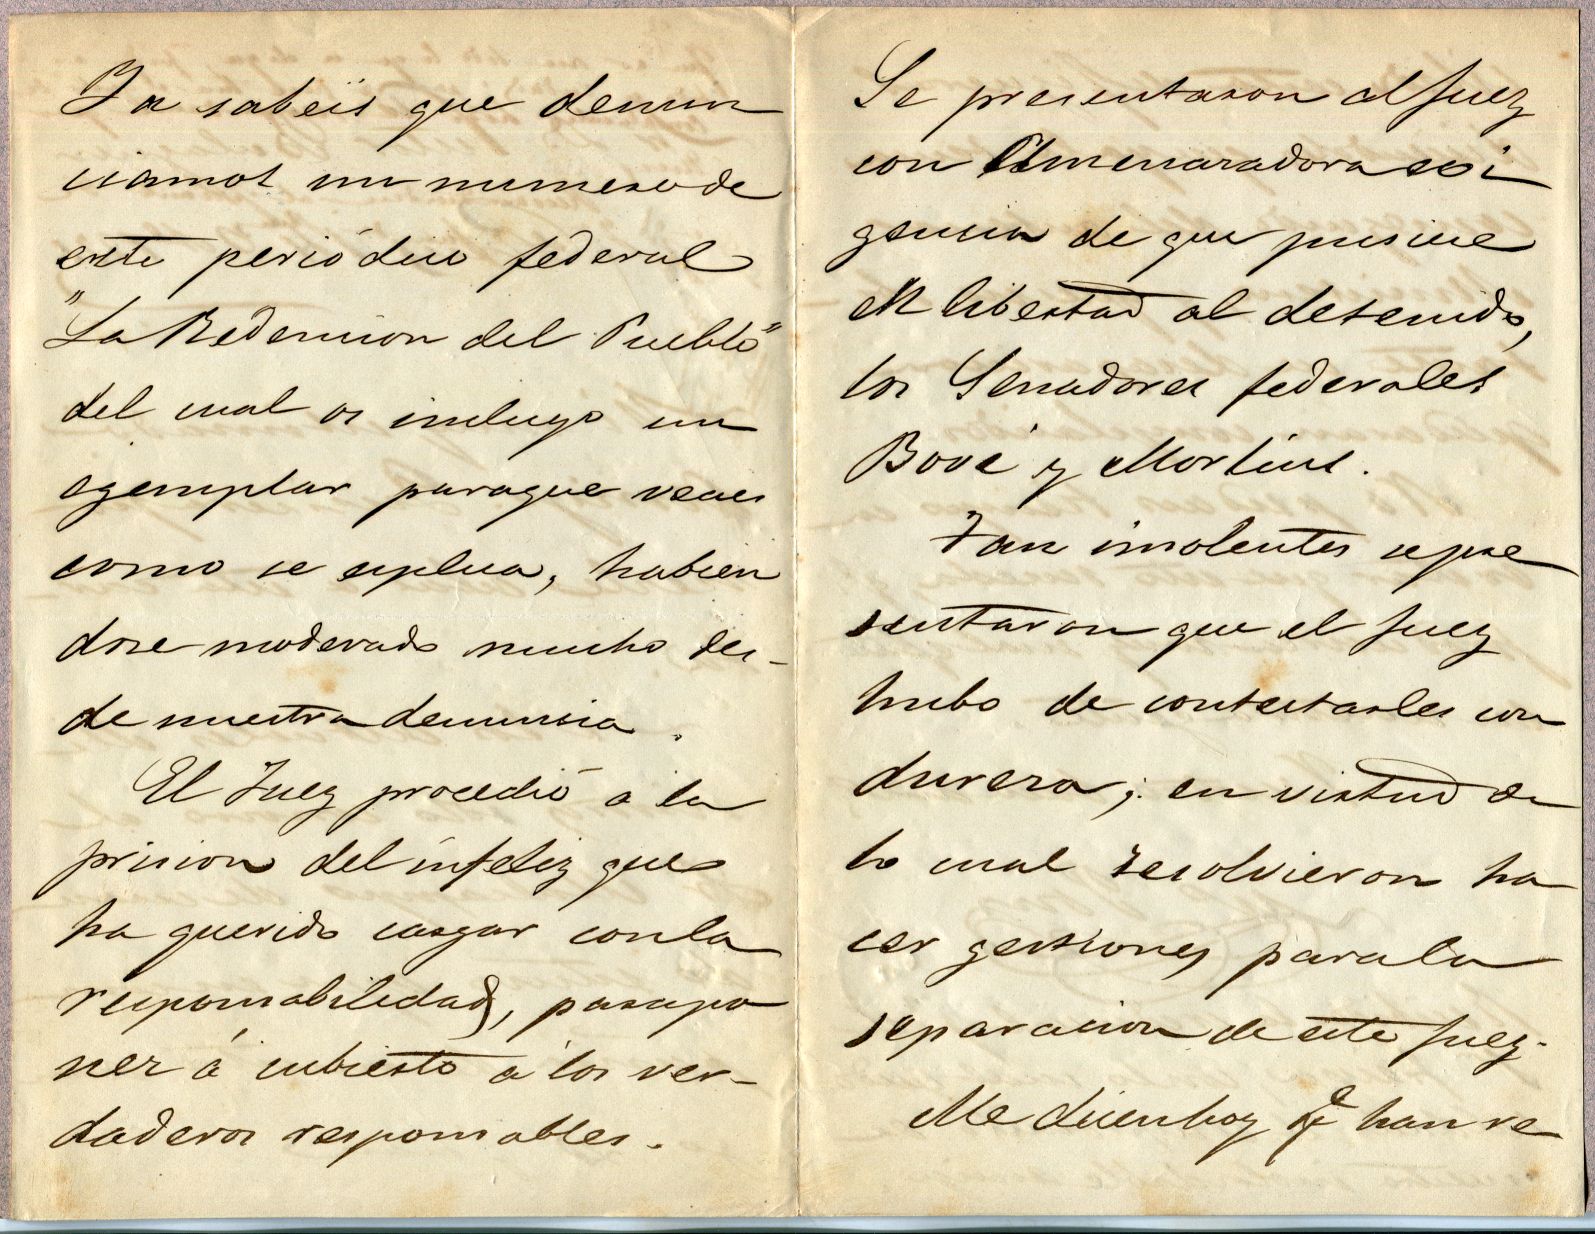 Ya sabeis que denun
ciamos un numero de
este periódico federal
"La Redencion del Pueblo"
del cual os incluyo un
egemplar paraque veais
como se esplica, habien
dose moderado mucho des-
de nuestra denuncia.
El Juez procedió a la
prision del infeliz que
ha querido cargar con la
responsabilidad, para po
ner á cubierto a los ver-
daderos responsables.
Se presentaron al Juez
con Amenazadora exi
gencia de que pusiese
en libertad al detenido,
los Senadores federales
Bové y Martius.
Tan insolentes se pre
sentaron que el Juez
hubo de contestarles con
dureza; en virtud de
lo cual resolvieron ha
cer gestiones para la
separacion de este Juez.
Me dicen hoy qe han re